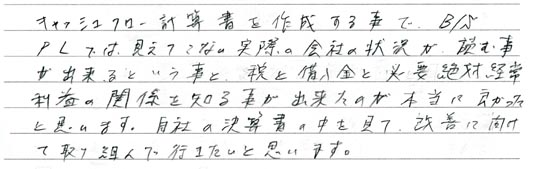 キャッシュフロー計算書を作成する事で、B/S
PLでは、見えてこない実際の会社の状況が、読む事
が出来るという事と、税と借入金と必要絶対経常
利益の関係を知る事が出来たのが本当に良かった
と思います。自社の決算書の中を見て、改善に向け
て取り組んで行きたいと思います。